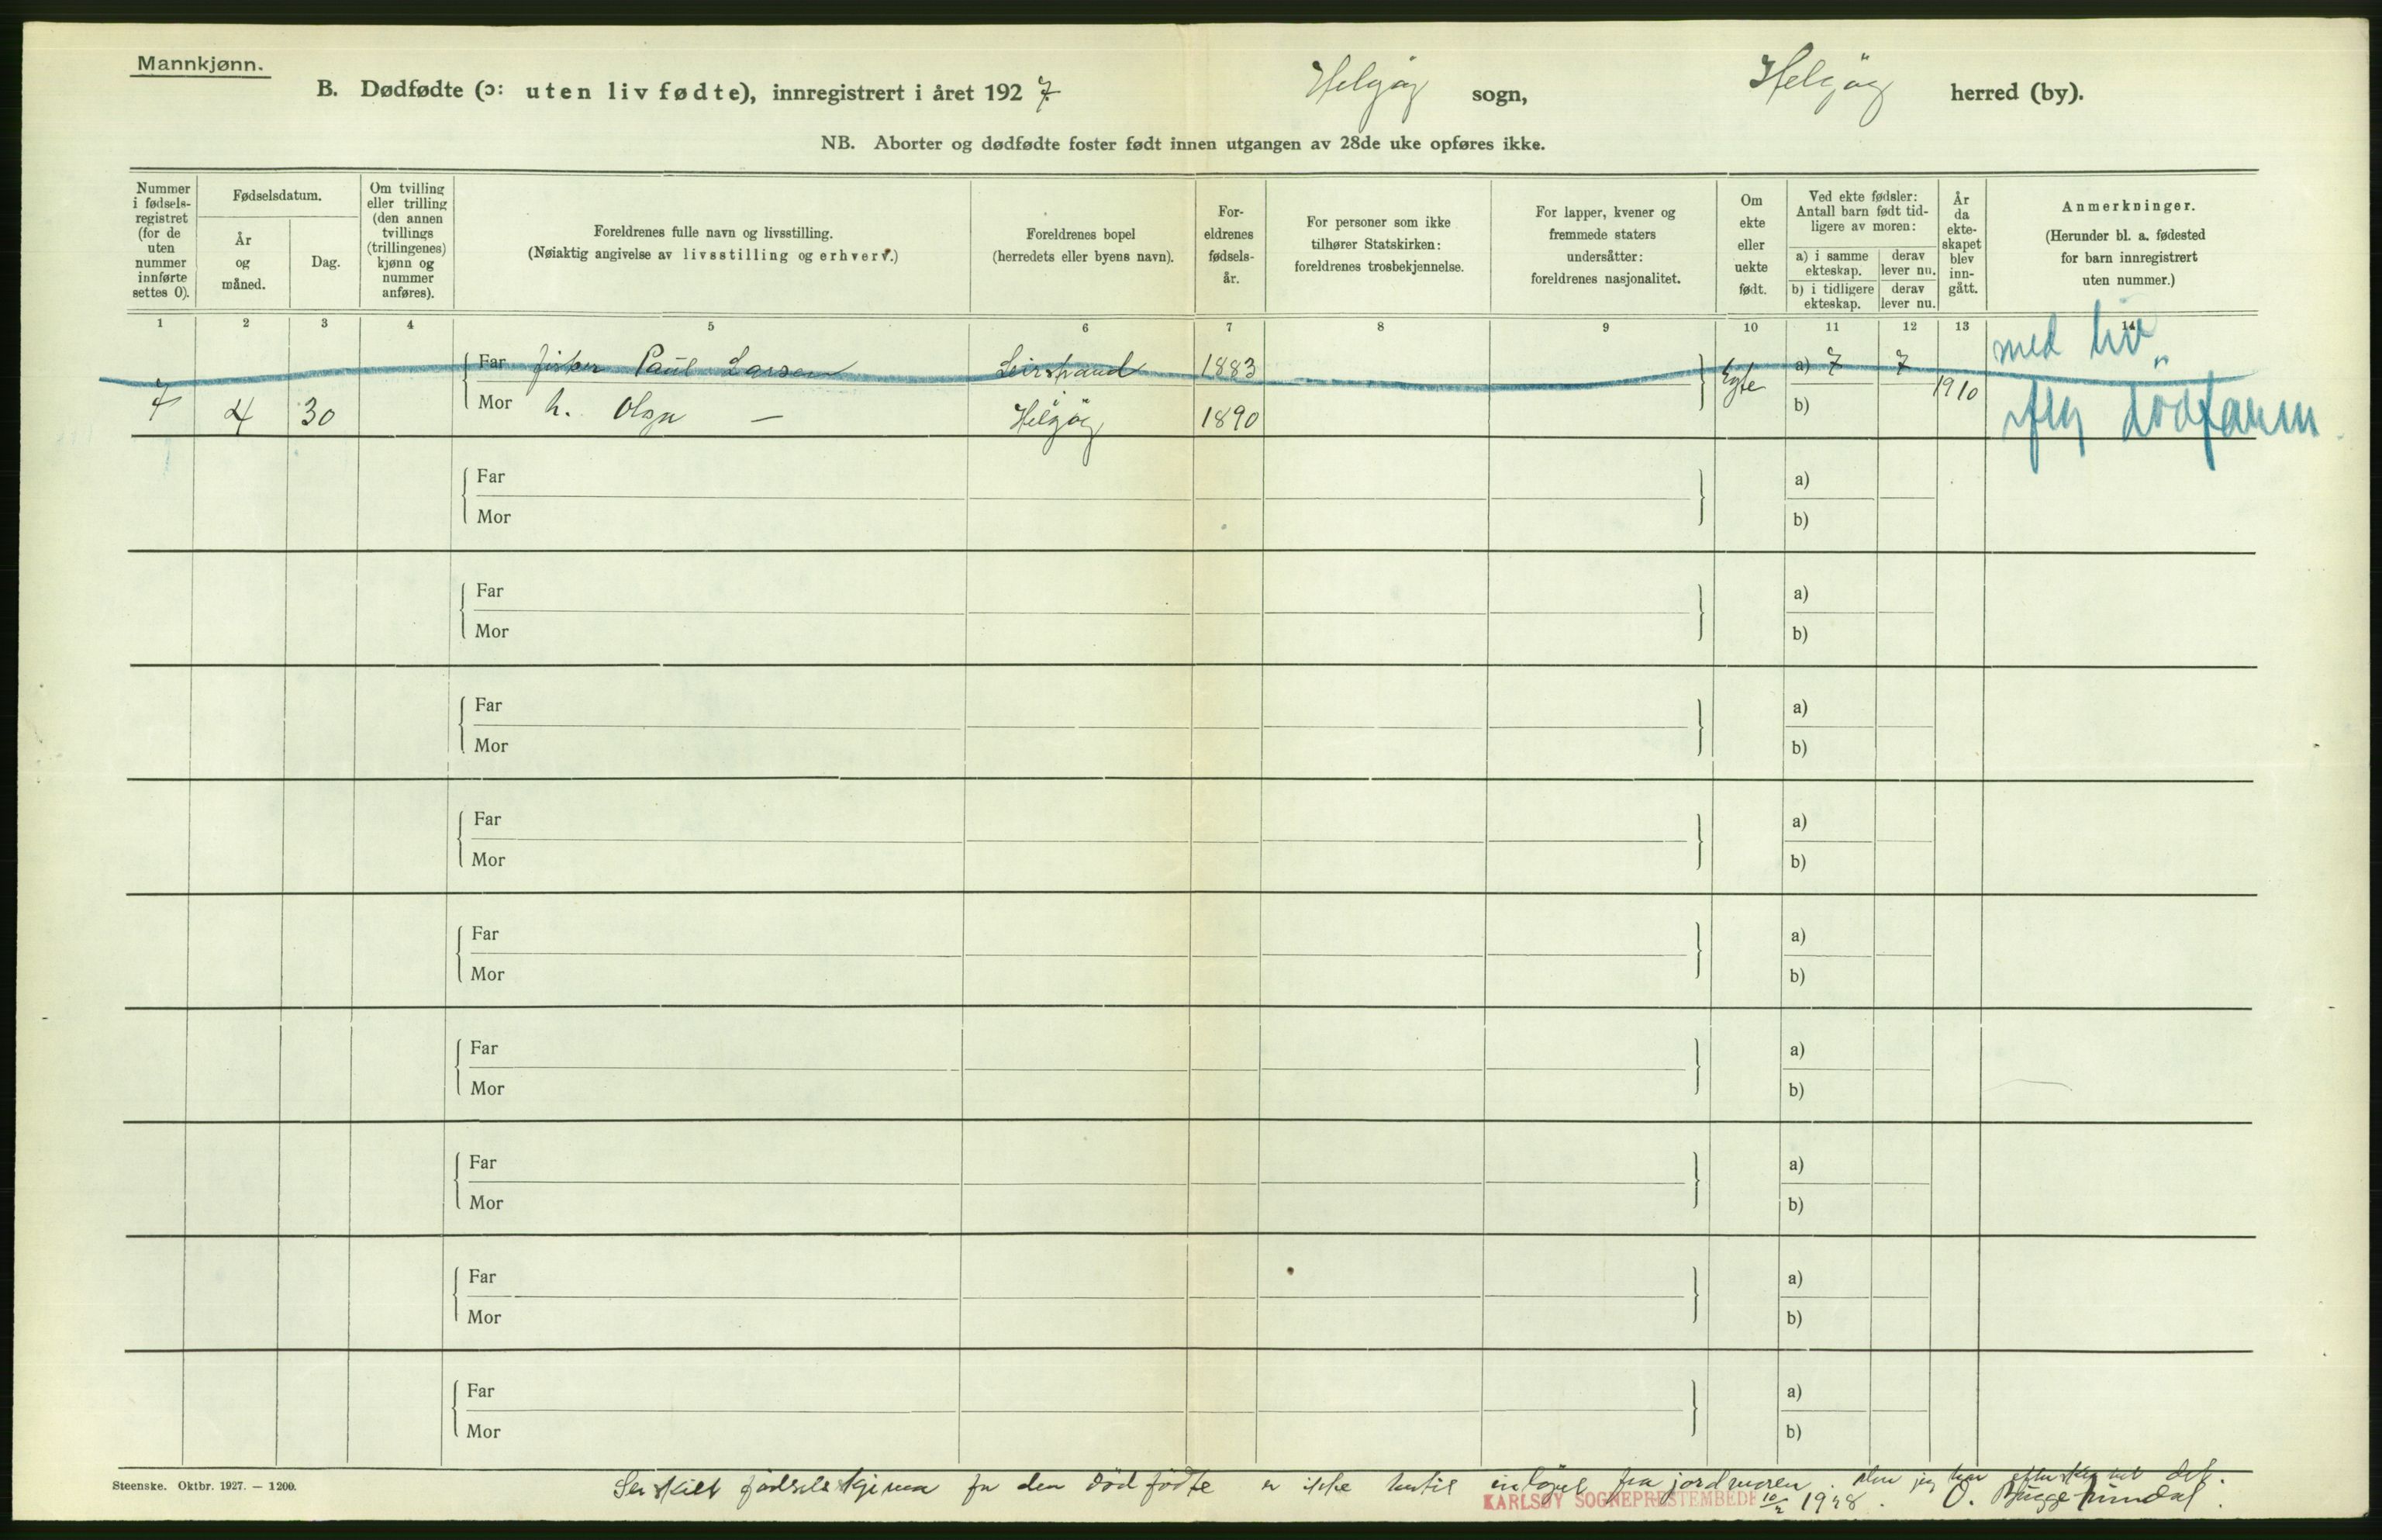 Mannkjønn.
B. Dødfødte (ɔ: uten liv fødte), innregistrert i året 1927 Helgøy sogn, Helgøy herred (by).
NB. Aborter og dødfødte foster født innen utgangen av 28de uke opføres ikke.
Nummer i fødsels-registret (for de uten nummer innførte settes 0).
Fødselsdatum.
År og måned.
Dag.
Om tvilling eller trilling (den annen tvillings (trillingenes) kjønn og nummer anføres).
Foreldrenes fulle navn og livsstilling.
(Nøiaktig angivelse av livsstilling og erhverv.)
Foreldrenes bopel
(herredets eller byens navn).
For-eldrenes fødsels-år.
For personer som ikke tilhører Statskirken: foreldrenes trosbekjennelse.
For lapper, kvener og fremmede staters undersåtter: foreldrenes nasjonalitet.
Om ekte eller uekte født.
Ved ekte fødsler: Antall barn født tid-ligere av moren:
a) i samme ekteskap.
derav lever nu.
b) i tidligere ekteskap.
derav lever nu.
År da ekte-skapet blev inn-gått.
Anmerkninger.
(Herunder bl. a. fødested for barn innregistrert uten nummer.)
1 2 3 4 5 6 7 8 9 10 11 12 13 14
med liv
Far fisker Paul Larsen Leirstrand 1883 Egte a) 7 7
7 4 30 Mor h. Olga — Helgøy 1890 b) 1910
Far a)
Mor b)
Far a)
Mor b)
Far a)
Mor b)
Far a)
Mor b)
Far a)
Mor b)
Far a)
Mor b)
Far a)
Mor b)
Far a)
Mor b)
Far a)
Mor b)
Steenske. Oktbr. 1927. — 1200.
Særskilt fødselsskjema for den dødfødte er ikke hittil indløpet fra jordmoren. Men jeg har efterskrevet det.
KARLSØY SOGNEPRESTEMBEDE 10/2 1928. O. Bugge